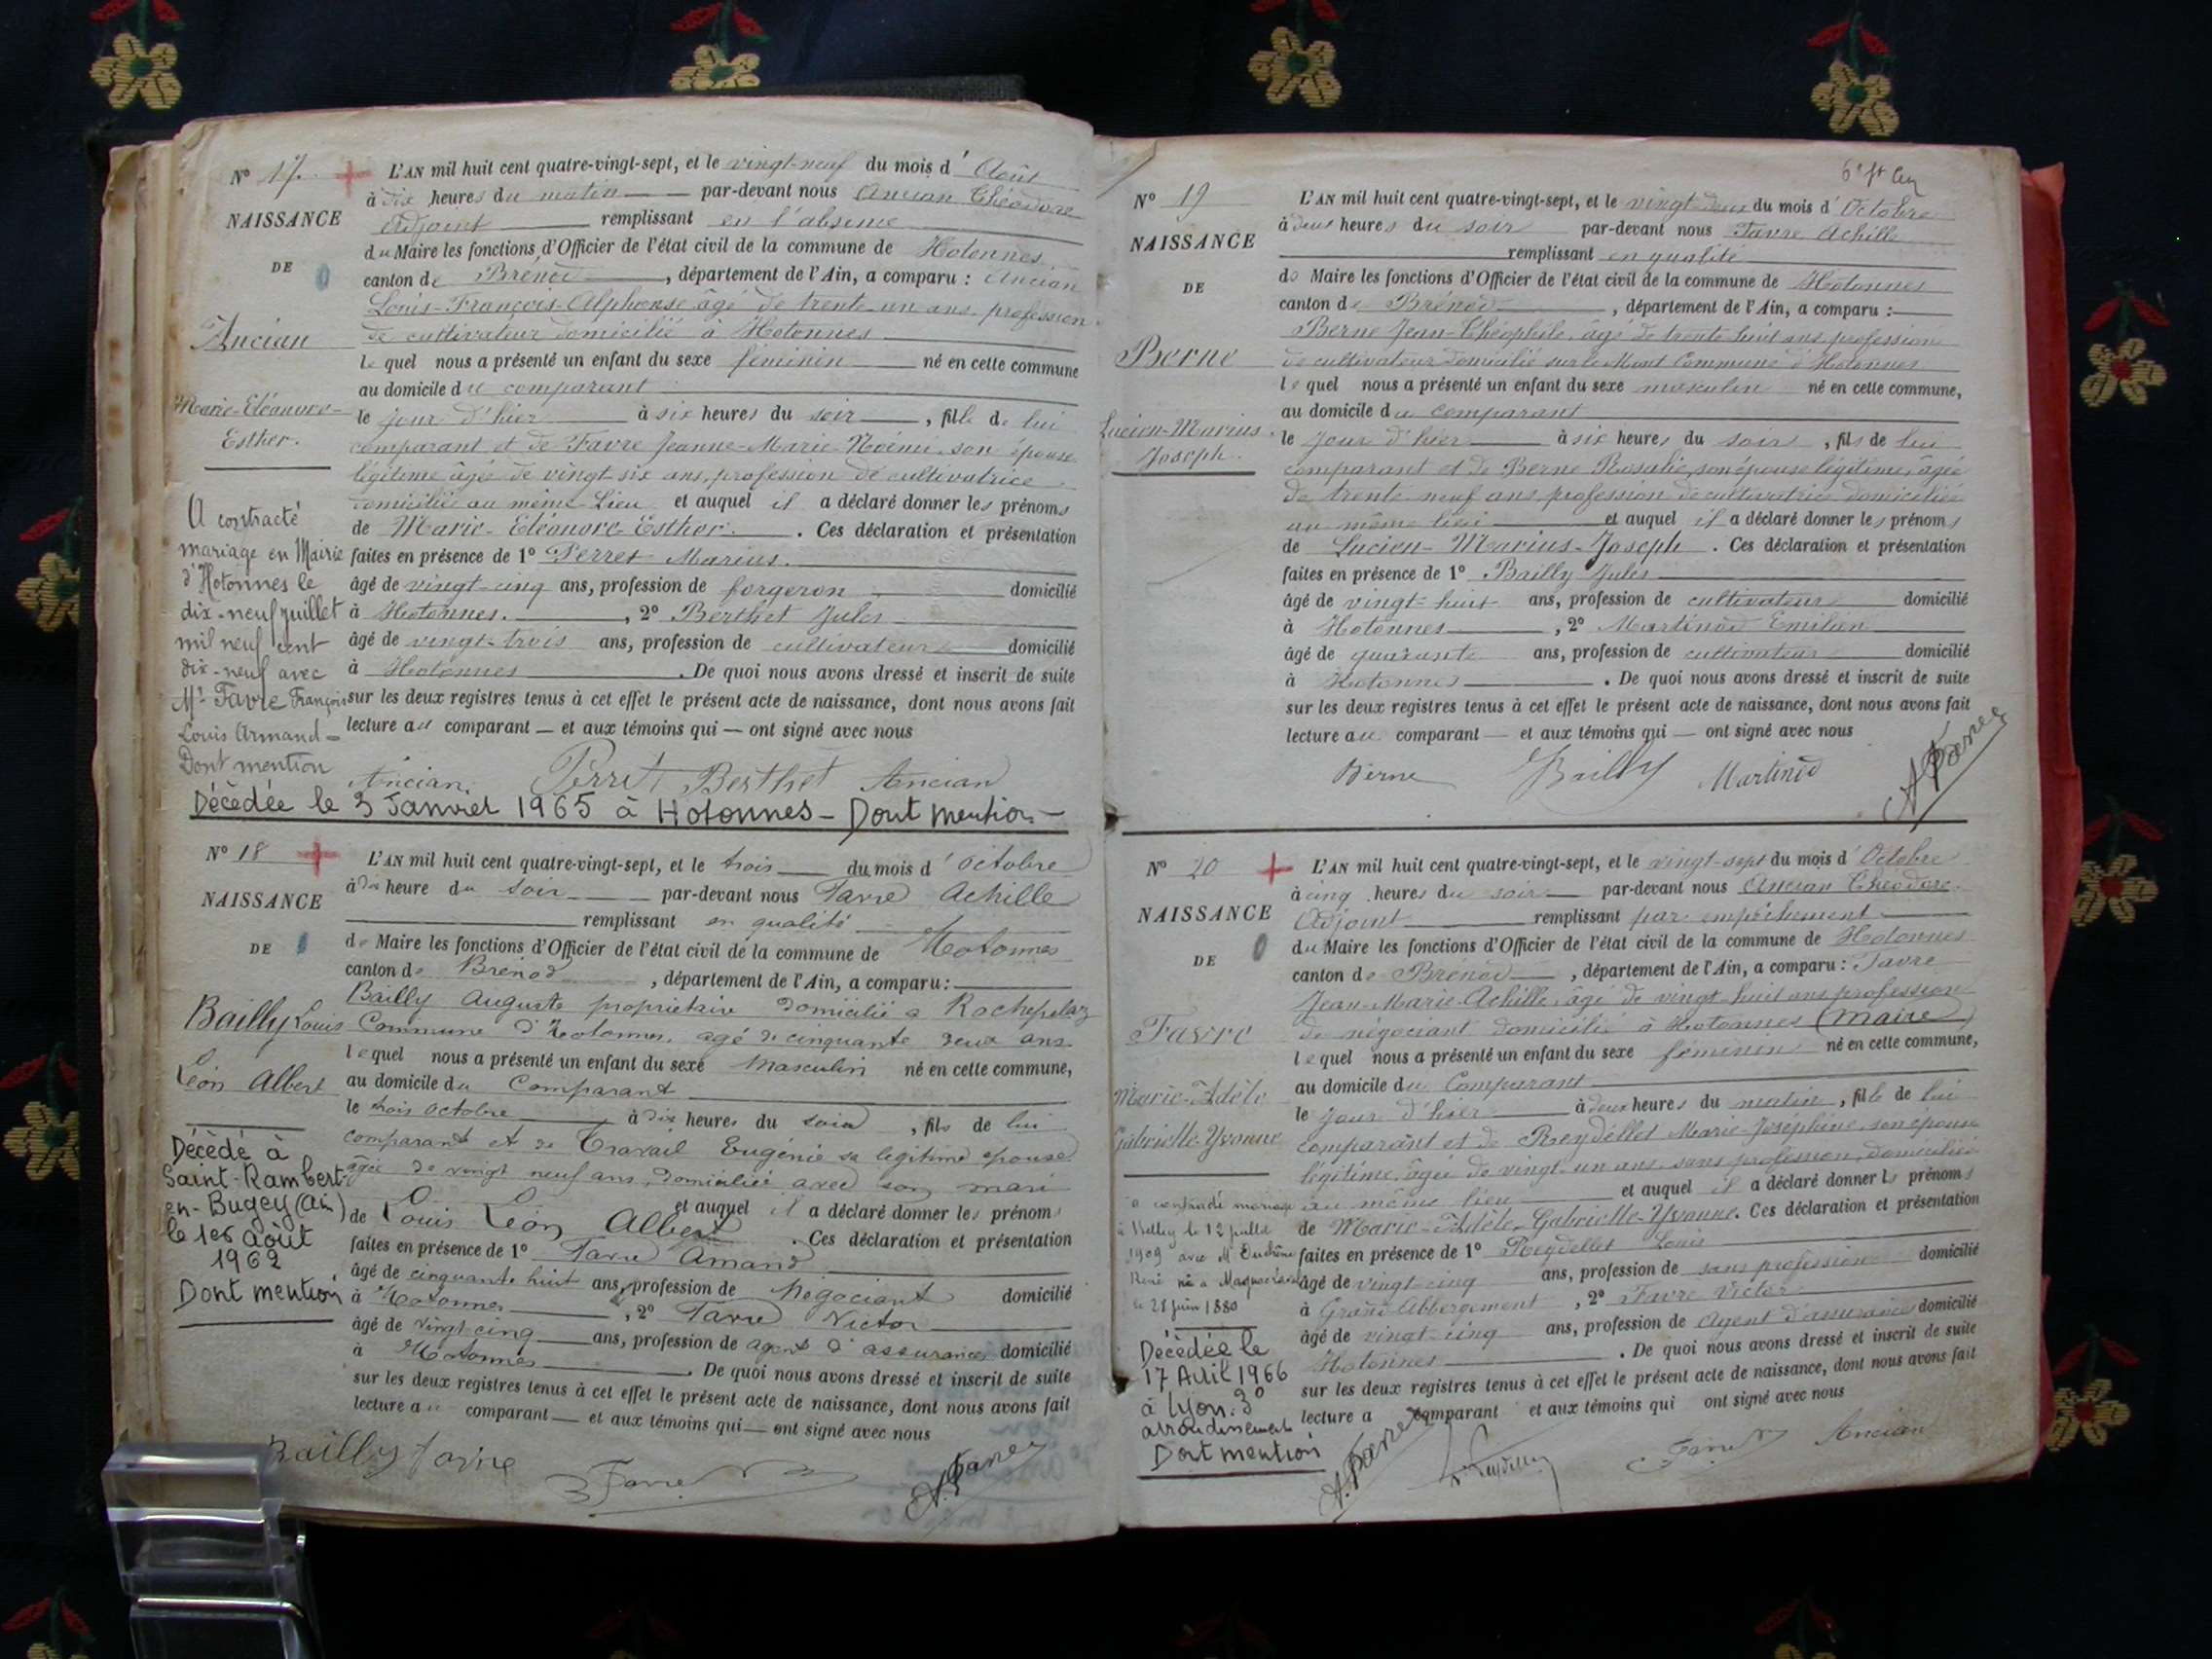 N° 17.
NAISSANCE
DE
Ancian
Marie-Eléonore-
Esther.
A contracté
mariage en Mairie
d'Hotonnes le
dix-neuf juillet
mil neuf cent
dix-neuf avec
Mr Favre François
Louis Armand -
Dont mention
L'AN mil huit cent quatre-vingt-sept, et le vingt-neuf du mois d'Août
à dix heures du matin par-devant nous Ancian Théodore
Adjoint remplissant en l'absence
du Maire les fonctions d'Officier de l'état civil de la commune de Hotonnes
canton de Brénod, département de l'Ain, a comparu : Ancian
Louis-François-Alphonse âgé de trente un ans profession
de cultivateur domicilié à Hotonnes
lequel nous a présenté un enfant du sexe féminin né en cette commune
au domicile du comparant
le jour d'hier à six heures du soir, fille de lui
comparant et de Favre Jeanne-Marie-Noémi son épouse
légitime âgée de vingt six ans, profession de cultivatrice
domiciliée au même Lieu et auquel il a déclaré donner les prénoms
de Marie-Eléonore-Esther. Ces déclaration et présentation
faites en présence de 1° Perret Marius.
âgé de vingt-cinq ans, profession de forgeron domicilié
à Hotonnes., 2° Berthet Jules
âgé de vingt-trois ans, profession de cultivateur domicilié
à Hotonnes. De quoi nous avons dressé et inscrit de suite
sur les deux registres tenus à cet effet le présent acte de naissance, dont nous avons fait
lecture au comparant — et aux témoins qui — ont signé avec nous
Ancian. Perret Berthet Ancian
Décédée le 3 Janvier 1965 à Hotonnes - Dont mention -
N° 18
NAISSANCE
DE
Bailly Louis
Léon Albert
Décédé à
Saint-Rambert-
en-Bugey (Ain)
le 1er août
1962
Dont mention
L'AN mil huit cent quatre-vingt-sept, et le trois du mois d'octobre
à dix heure du soir par-devant nous Favre Achille
remplissant en qualité
de Maire les fonctions d'Officier de l'état civil de la commune de Hotonnes
canton de Brénod, département de l'Ain, a comparu :
Bailly Auguste propriétaire domicilié a Rochepelaz
Commune d'Hotonnes, agé de cinquante deux ans
lequel nous a présenté un enfant du sexe Masculin né en cette commune,
au domicile du Comparant
le trois octobre à dix heures du soir, fils de lui
comparant et de Travail Eugénie sa legitime epouse
âgée de vingt neuf ans, domiciliée avec son mari
et auquel il a déclaré donner les prénoms
de Louis Léon Albert. Ces déclaration et présentation
faites en présence de 1° Favre Amand
âgé de cinquante huit ans, profession de Négociant domicilié
à Hotonnes, 2° Favre Victor
âgé de vingt-cinq ans, profession de agent d'assurances domicilié
à Hotonnes. De quoi nous avons dressé et inscrit de suite
sur les deux registres tenus à cet effet le présent acte de naissance, dont nous avons fait
lecture au comparant — et aux témoins qui — ont signé avec nous
Bailly favre Favre A. Favre
N° 19
NAISSANCE
DE
Berne
Lucien-Marius-
Joseph.
L'AN mil huit cent quatre-vingt-sept, et le vingt-deux du mois d'Octobre
à deux heures du soir par-devant nous Favre Achille
remplissant en qualité
de Maire les fonctions d'Officier de l'état civil de la commune de Hotonnes
canton de Brénod, département de l'Ain, a comparu :
Berne Jean-Théophile, âgé de trente huit ans profession
de cultivateur domicilié sur le Mont Commune d'Hotonnes
lequel nous a présenté un enfant du sexe masculin né en cette commune,
au domicile du comparant
le jour d'hier à six heures du soir, fils de lui
comparant et de Berne Rosalie, son épouse légitime, âgée
de trente neuf ans profession de cultivatrice domiciliée
au même lieu et auquel il a déclaré donner les prénoms
de Lucien-Marius-Joseph. Ces déclaration et présentation
faites en présence de 1° Bailly Jules
âgé de vingt-huit ans, profession de cultivateur domicilié
à Hotonnes, 2° Martinod Emilien
âgé de quarante ans, profession de cultivateur domicilié
à Hotonnes. De quoi nous avons dressé et inscrit de suite
sur les deux registres tenus à cet effet le présent acte de naissance, dont nous avons fait
lecture au comparant — et aux témoins qui — ont signé avec nous
Berne Bailly Martinod A Favre
N° 20
NAISSANCE
DE
Favre
Marie-Adèle
Gabrielle-Yvonne
a contracté mariage
à Belley le 12 juillet
1909 avec Mr Duchêne
René né a
le 28 juin 1880
Décédée le
17 Avril 1966
à Lyon. 3°
arrondissement
Dont mention
L'AN mil huit cent quatre-vingt-sept, et le vingt-sept du mois d'Octobre
à cinq heures du soir par-devant nous Ancian Théodore
Adjoint remplissant par empêchement
du Maire les fonctions d'Officier de l'état civil de la commune de Hotonnes
canton de Brénod, département de l'Ain, a comparu : Favre
Jean-Marie-Achille, âgé de vingt huit ans profession
de négociant domicilié à Hotonnes (Maire)
lequel nous a présenté un enfant du sexe féminin né en cette commune,
au domicile du Comparant
le jour d'hier à deux heures du matin, fille de lui
comparant et de Reydellet Marie-Joséphine, son épouse
légitime, âgée de vingt-un ans, sans profession, domiciliée
au même lieu et auquel il a déclaré donner les prénoms
de Marie-Adèle-Gabrielle-Yvonne. Ces déclaration et présentation
faites en présence de 1° Reydellet Louis
âgé de vingt-cinq ans, profession de sans profession domicilié
à Grand Abbergement, 2° Favre Victor
âgé de vingt-cinq ans, profession de Agent d'assurances domicilié
Hotonnes. De quoi nous avons dressé et inscrit de suite
sur les deux registres tenus à cet effet le présent acte de naissance, dont nous avons fait
lecture a comparant et aux témoins qui ont signé avec nous
A. Favre Favre Ancian